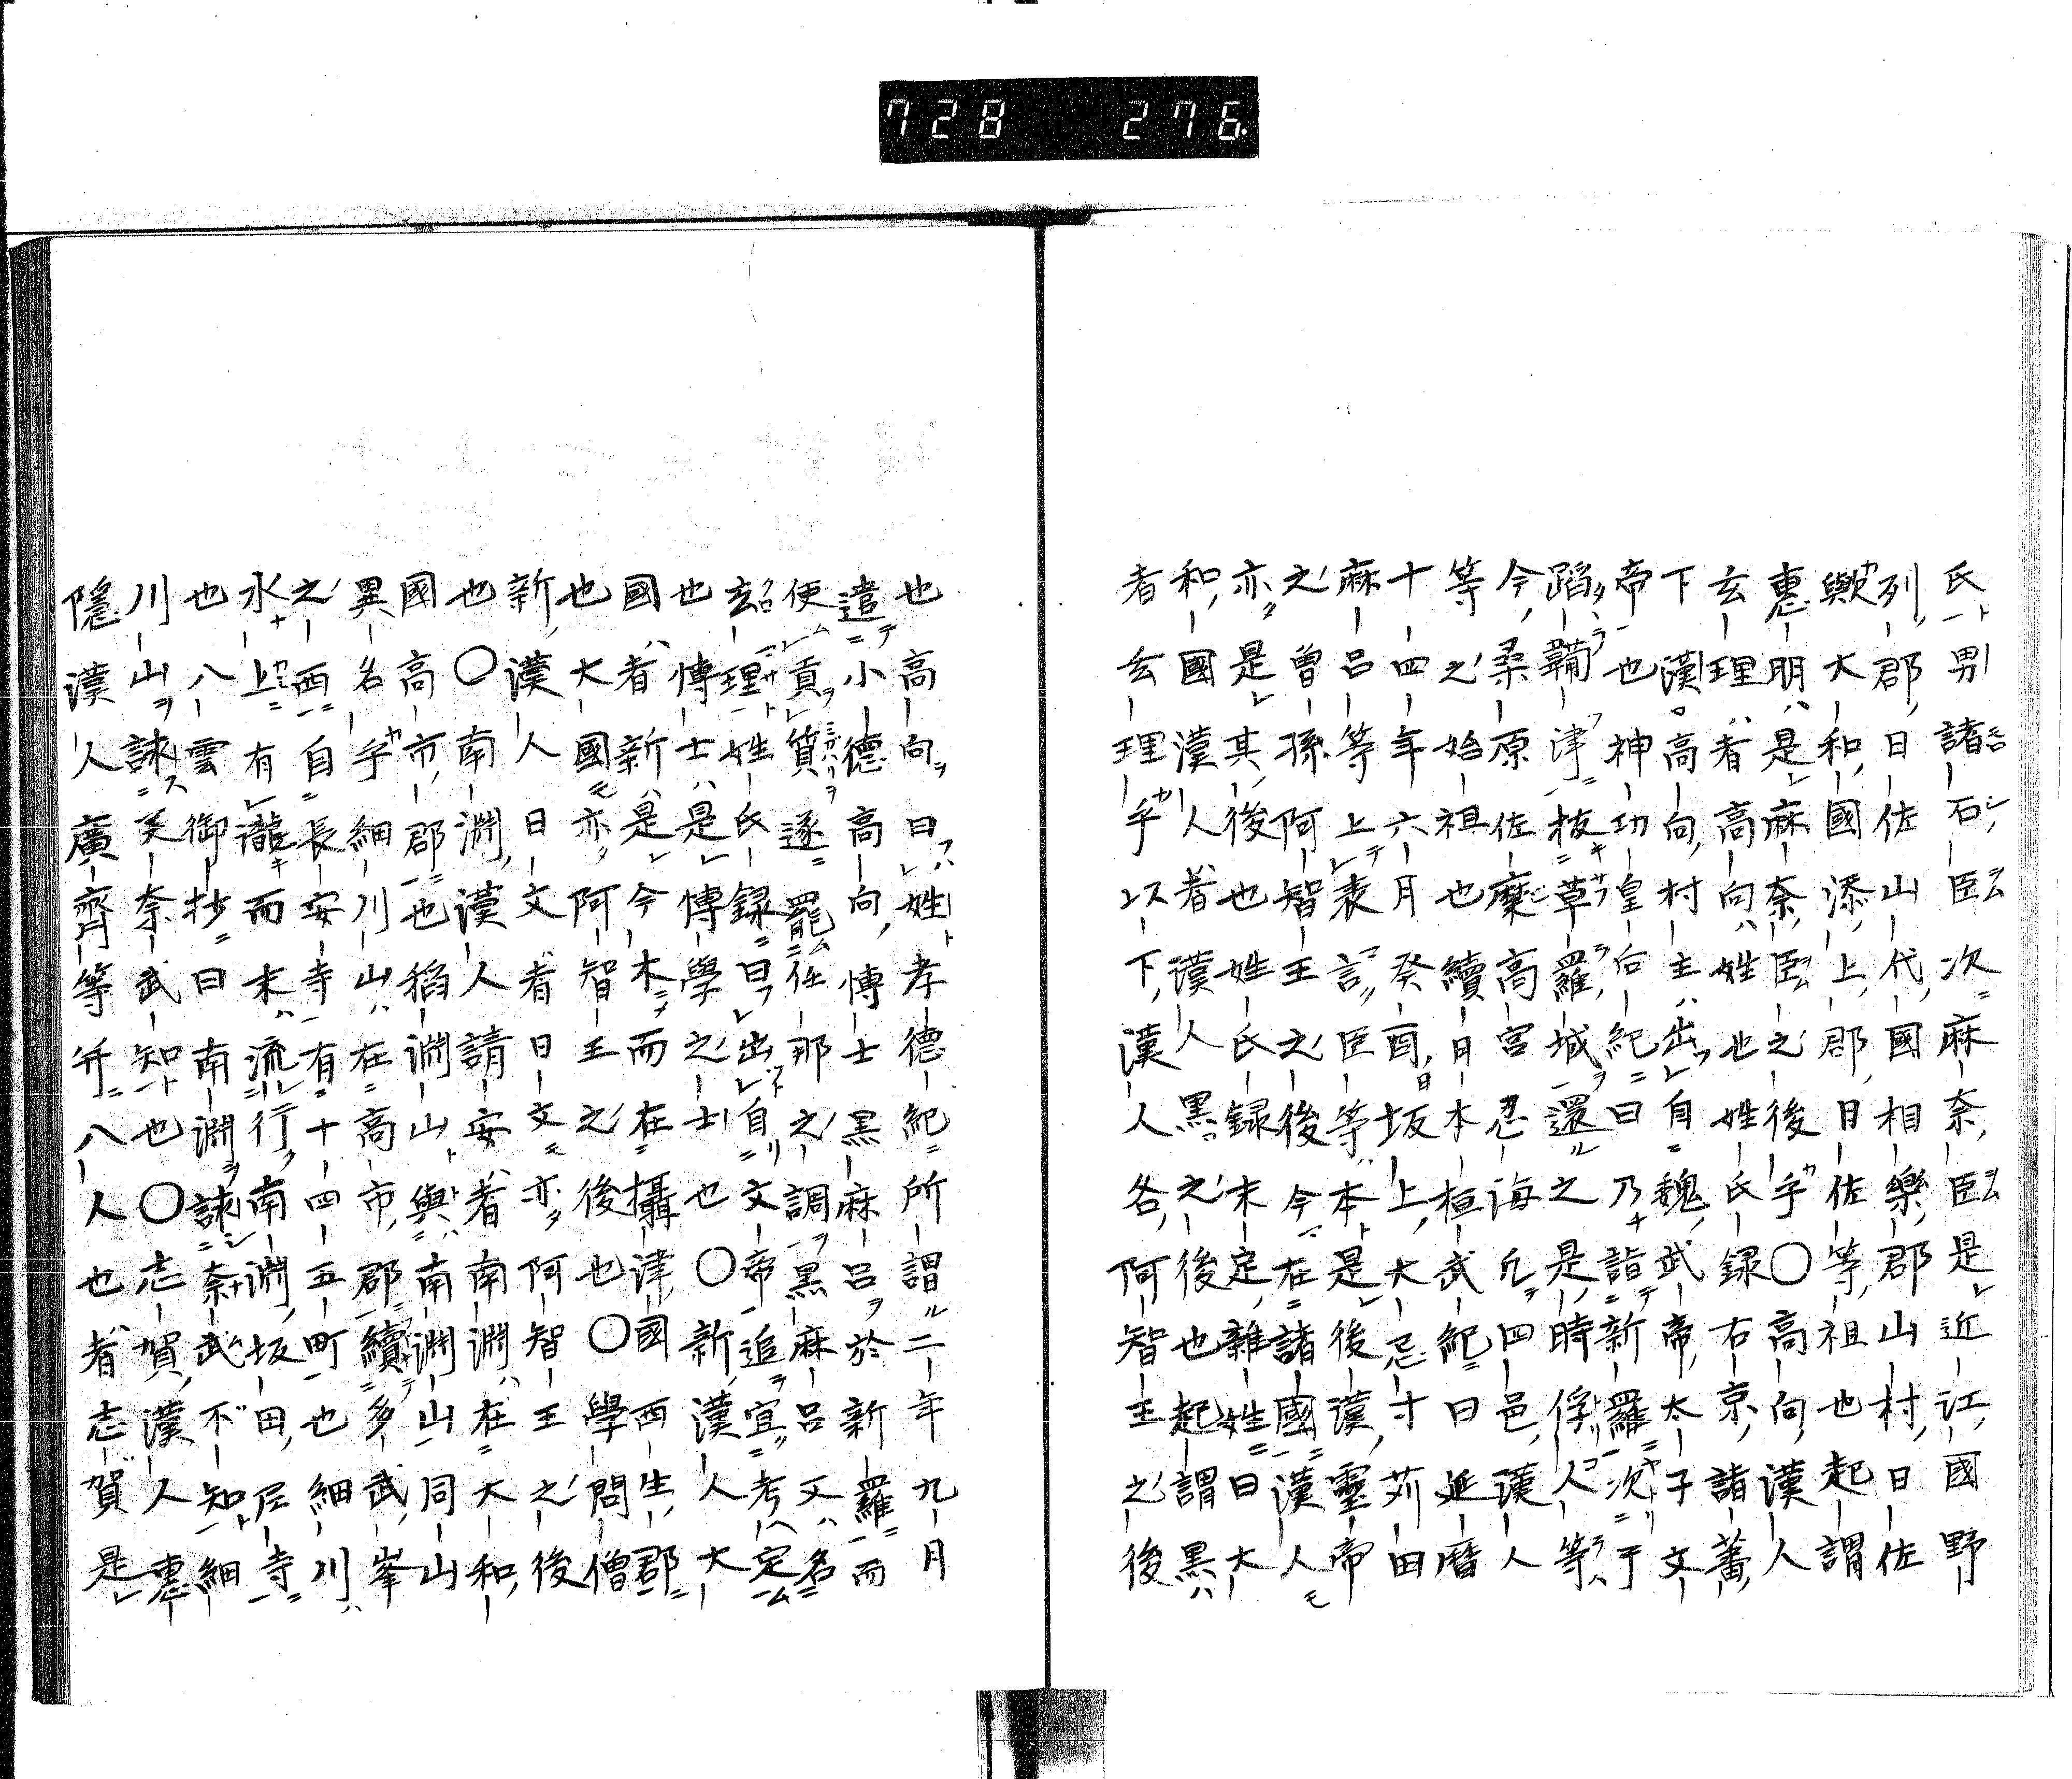 728 276
氏男諸石臣次麻奈臣是近江國野
列郡日佐山代國相樂郡山村日佐
歟大和國添上郡日佐等祖也起謂
惠明是麻奈臣之後乎〇高向漢人
玄理者高向姓也姓氏録右京諸蕃
下漢高向村主出自魏武帝太子文
帝也神功皇后紀曰乃詣新羅次于
蹈鞴津拔草羅城還之是時俘人等
今桑原佐糜高宮忍海凡四邑漢人
等之始祖也續日本桓武紀曰延暦
十四年六月癸酉坂上大忌寸苅田
麻呂等上表言臣等本是後漢靈帝
之曾孫阿智王之後今在諸國漢人
亦是其後也姓氏録未定雜姓曰大
和國漢人者漢人黒之後也起謂黒
者玄理乎以下漢人各阿智王之後
也高向曰姓孝德紀所謂二年九月
遣小德高向博士黒麻呂於新羅而
使貢質遂罷任那之調黒麻呂又名
玄理姓氏録曰出自文帝追宜考定
也博士是博學之士也〇新漢人大
國者新是今木而在攝津國西生郡
也大國亦阿智王之後也〇學問僧
新漢人日文者日文亦阿智王之後
也〇南淵漢人請安者南淵在大和
國高市郡也稻淵山與南淵山同山
異名乎細川山在高市郡續多武峯
之西自長安寺有十四五町也細川
水上有瀧而末流行南淵坂田尼寺
也八雲御抄曰南淵詠奈武不知細
川山詠美奈武知也〇志賀漢人惠
隱漢人廣齊等并八人也者志賀是